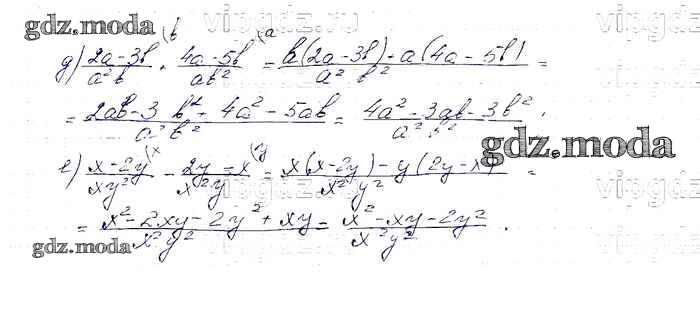 gdz.moda
vipgdz.ru
д) (2a-3b)/(a²b) (b + (4a-5b)/(ab²) (a = (b(2a-3b)+a(4a-5b))/(a²b²) =
= (2ab-3b²+4a²-5ab)/(a²b²) = (4a²-3ab-3b²)/(a²b²).
gdz.moda
е) (x-2y)/(xy²) (x - (2y-x)/(x²y) (y = (x(x-2y)-y(2y-x))/(x²y²) =
vipgdz
= (x²-2xy-2y²+xy)/(x²y²) = (x²-xy-2y²)/(x²y²).
gdz.moda
gdz.moda